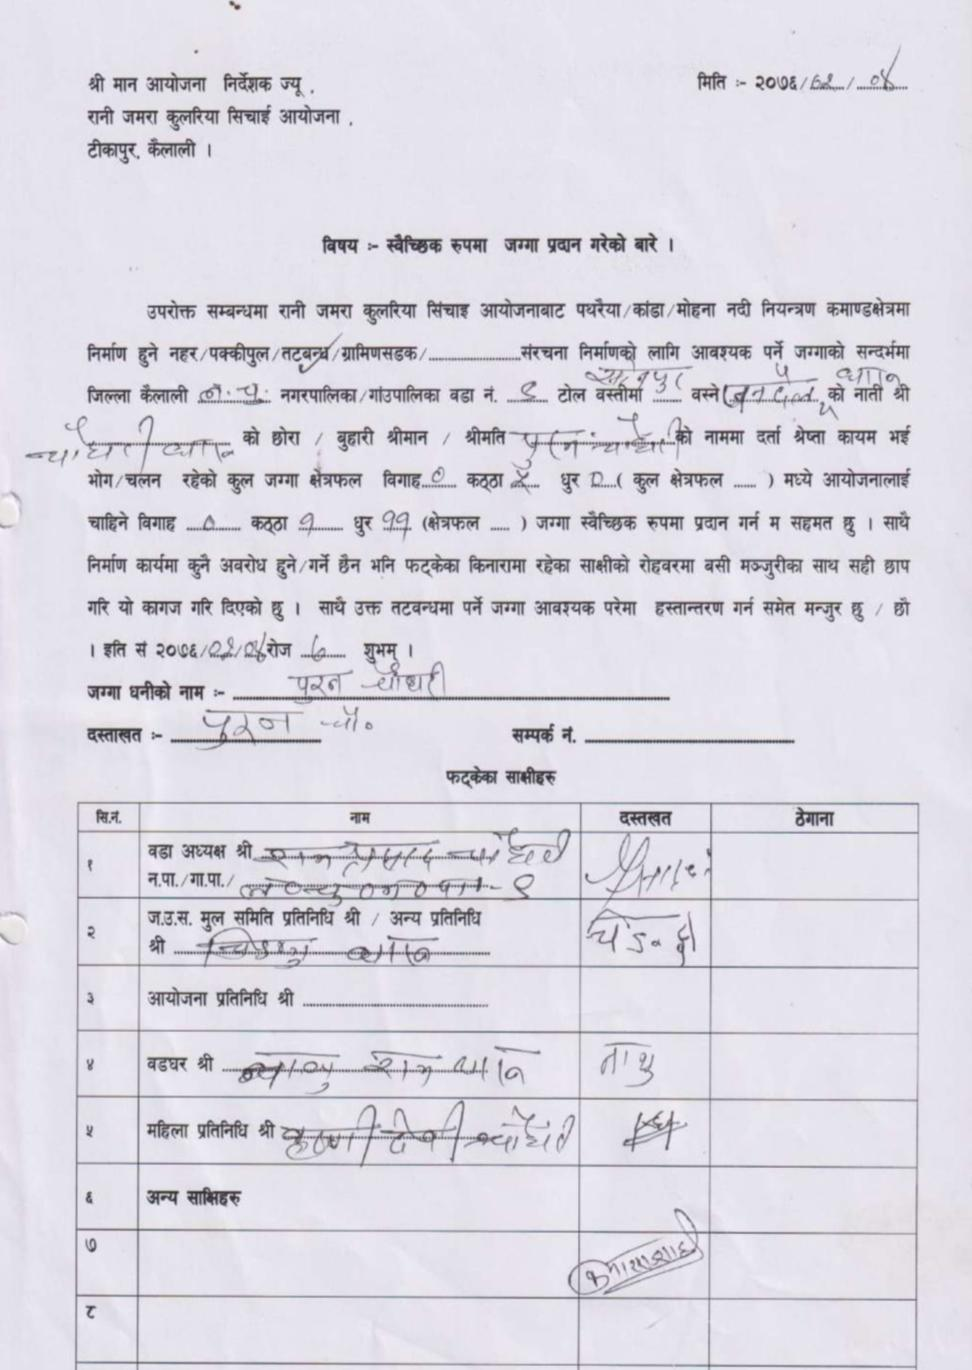 श्री मान आयोजना निर्देशक ज्यू ,
मिति :- २०७६/०२/०४
रानी जमरा कुलरिया सिचाई आयोजना ,
टीकापुर, कैलाली ।
विषय :- स्वैच्छिक रुपमा जग्गा प्रदान गरेको बारे ।
उपरोक्त सम्बन्धमा रानी जमरा कुलरिया सिंचाइ आयोजनाबाट पथरैया/कांडा/मोहना नदी नियन्त्रण कमाण्डक्षेत्रमा
निर्माण हुने नहर/पक्कीपुल/तटबन्ध/ग्रामिणसडक/....................संरचना निर्माणको लागि आवश्यक पर्ने जग्गाको सन्दर्भमा
जिल्ला कैलाली ल.चु. नगरपालिका/गांउपालिका वडा नं. टोल वस्तीमा वस्ने को नाती श्री
को छोरा / बुहारी श्रीमान / श्रीमति पुरन चौधरी को नाममा दर्ता श्रेष्ता कायम भई
भोग/चलन रहेको कुल जग्गा क्षेत्रफल विगाह ० कठ्ठा धुर ० ( कुल क्षेत्रफल ...... ) मध्ये आयोजनालाई
चाहिने विगाह ० कठ्ठा १ धुर ११ (क्षेत्रफल ..... ) जग्गा स्वैच्छिक रुपमा प्रदान गर्न म सहमत छु । साथै
निर्माण कार्यमा कुनै अवरोध हुने/गर्ने छैन भनि फट्केका किनारामा रहेका साक्षीको रोहवरमा बसी मञ्जुरीका साथ सही छाप
गरि यो कागज गरि दिएको छु । साथै उक्त तटवन्धमा पर्ने जग्गा आवश्यक परेमा हस्तान्तरण गर्न समेत मन्जुर छु / छौ
। इति सं २०७६/०२/०४ रोज शुभम् ।
जग्गा धनीको नाम :- पुरन चौधरी
दस्ताखत :- पुरन चौ०
सम्पर्क नं.
फट्केका साक्षीहरु
सि.नं. नाम दस्तखत ठेगाना
१ वडा अध्यक्ष श्री राम प्रसाद चौधरी
न.पा./गा.पा./
२ ज.उ.स. मुल समिति प्रतिनिधि श्री / अन्य प्रतिनिधि
श्री
३ आयोजना प्रतिनिधि श्री
४ वडघर श्री
५ महिला प्रतिनिधि श्री देवी चौधरी
६ अन्य साक्षिहरु
७
८